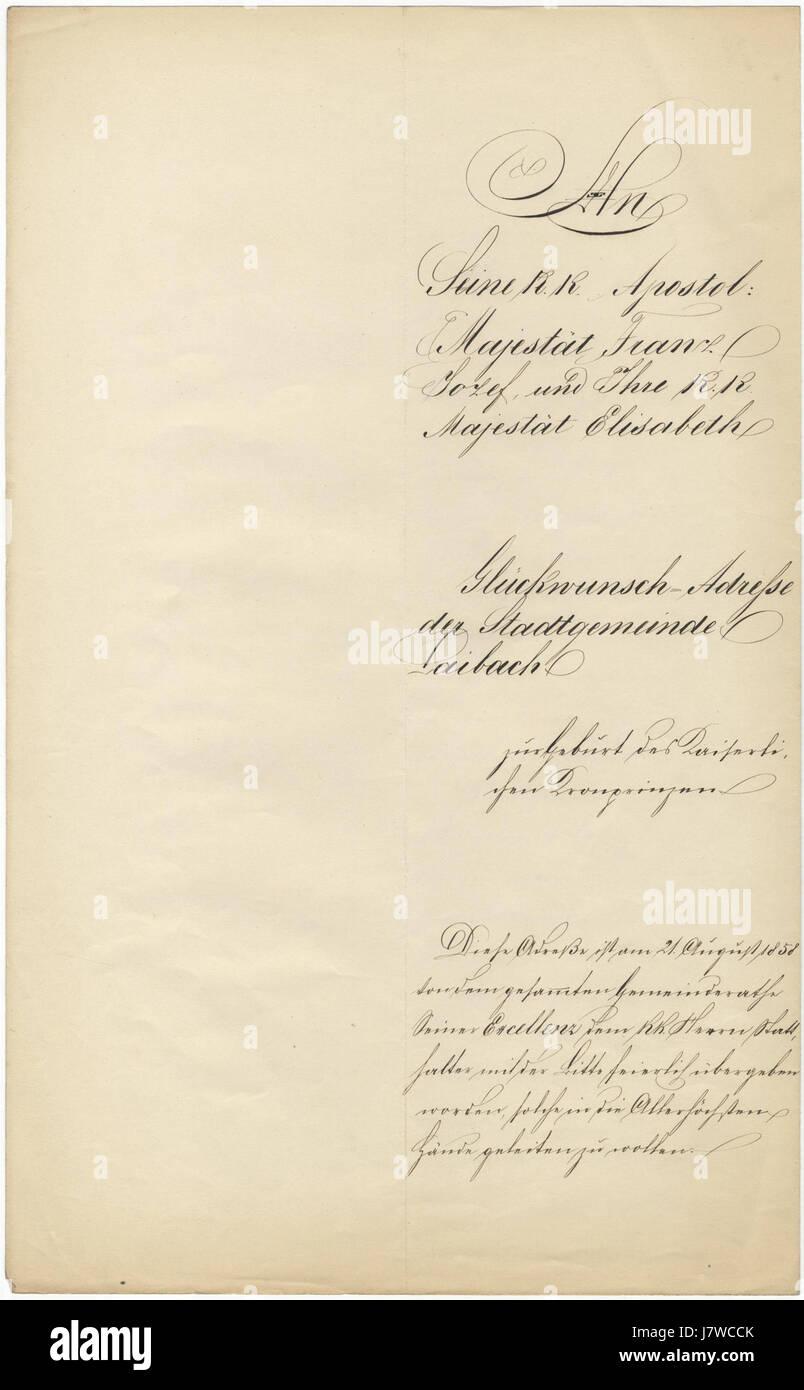 An
Seine K. K. Apostol:
Majestät Franz
Jozef, und Ihre K. K.
Majestät Elisabeth
Glückwunsch-Adresse
der Stadtgemeinde
Laibach
zur Geburt des Kaiserli-
chen Kronprinzen.
Diese Adreße ist am 21. August 1858
von dem gesammten Gemeinderathe
Seiner Excellenz dem KK Herrn Statt,
halter mit der Bitte feierlich übergeben
worden, solche in die Allerhöchsten
Hände geleiten zu wollen.
alamy
Image ID: J7WCCK
www.alamy.com